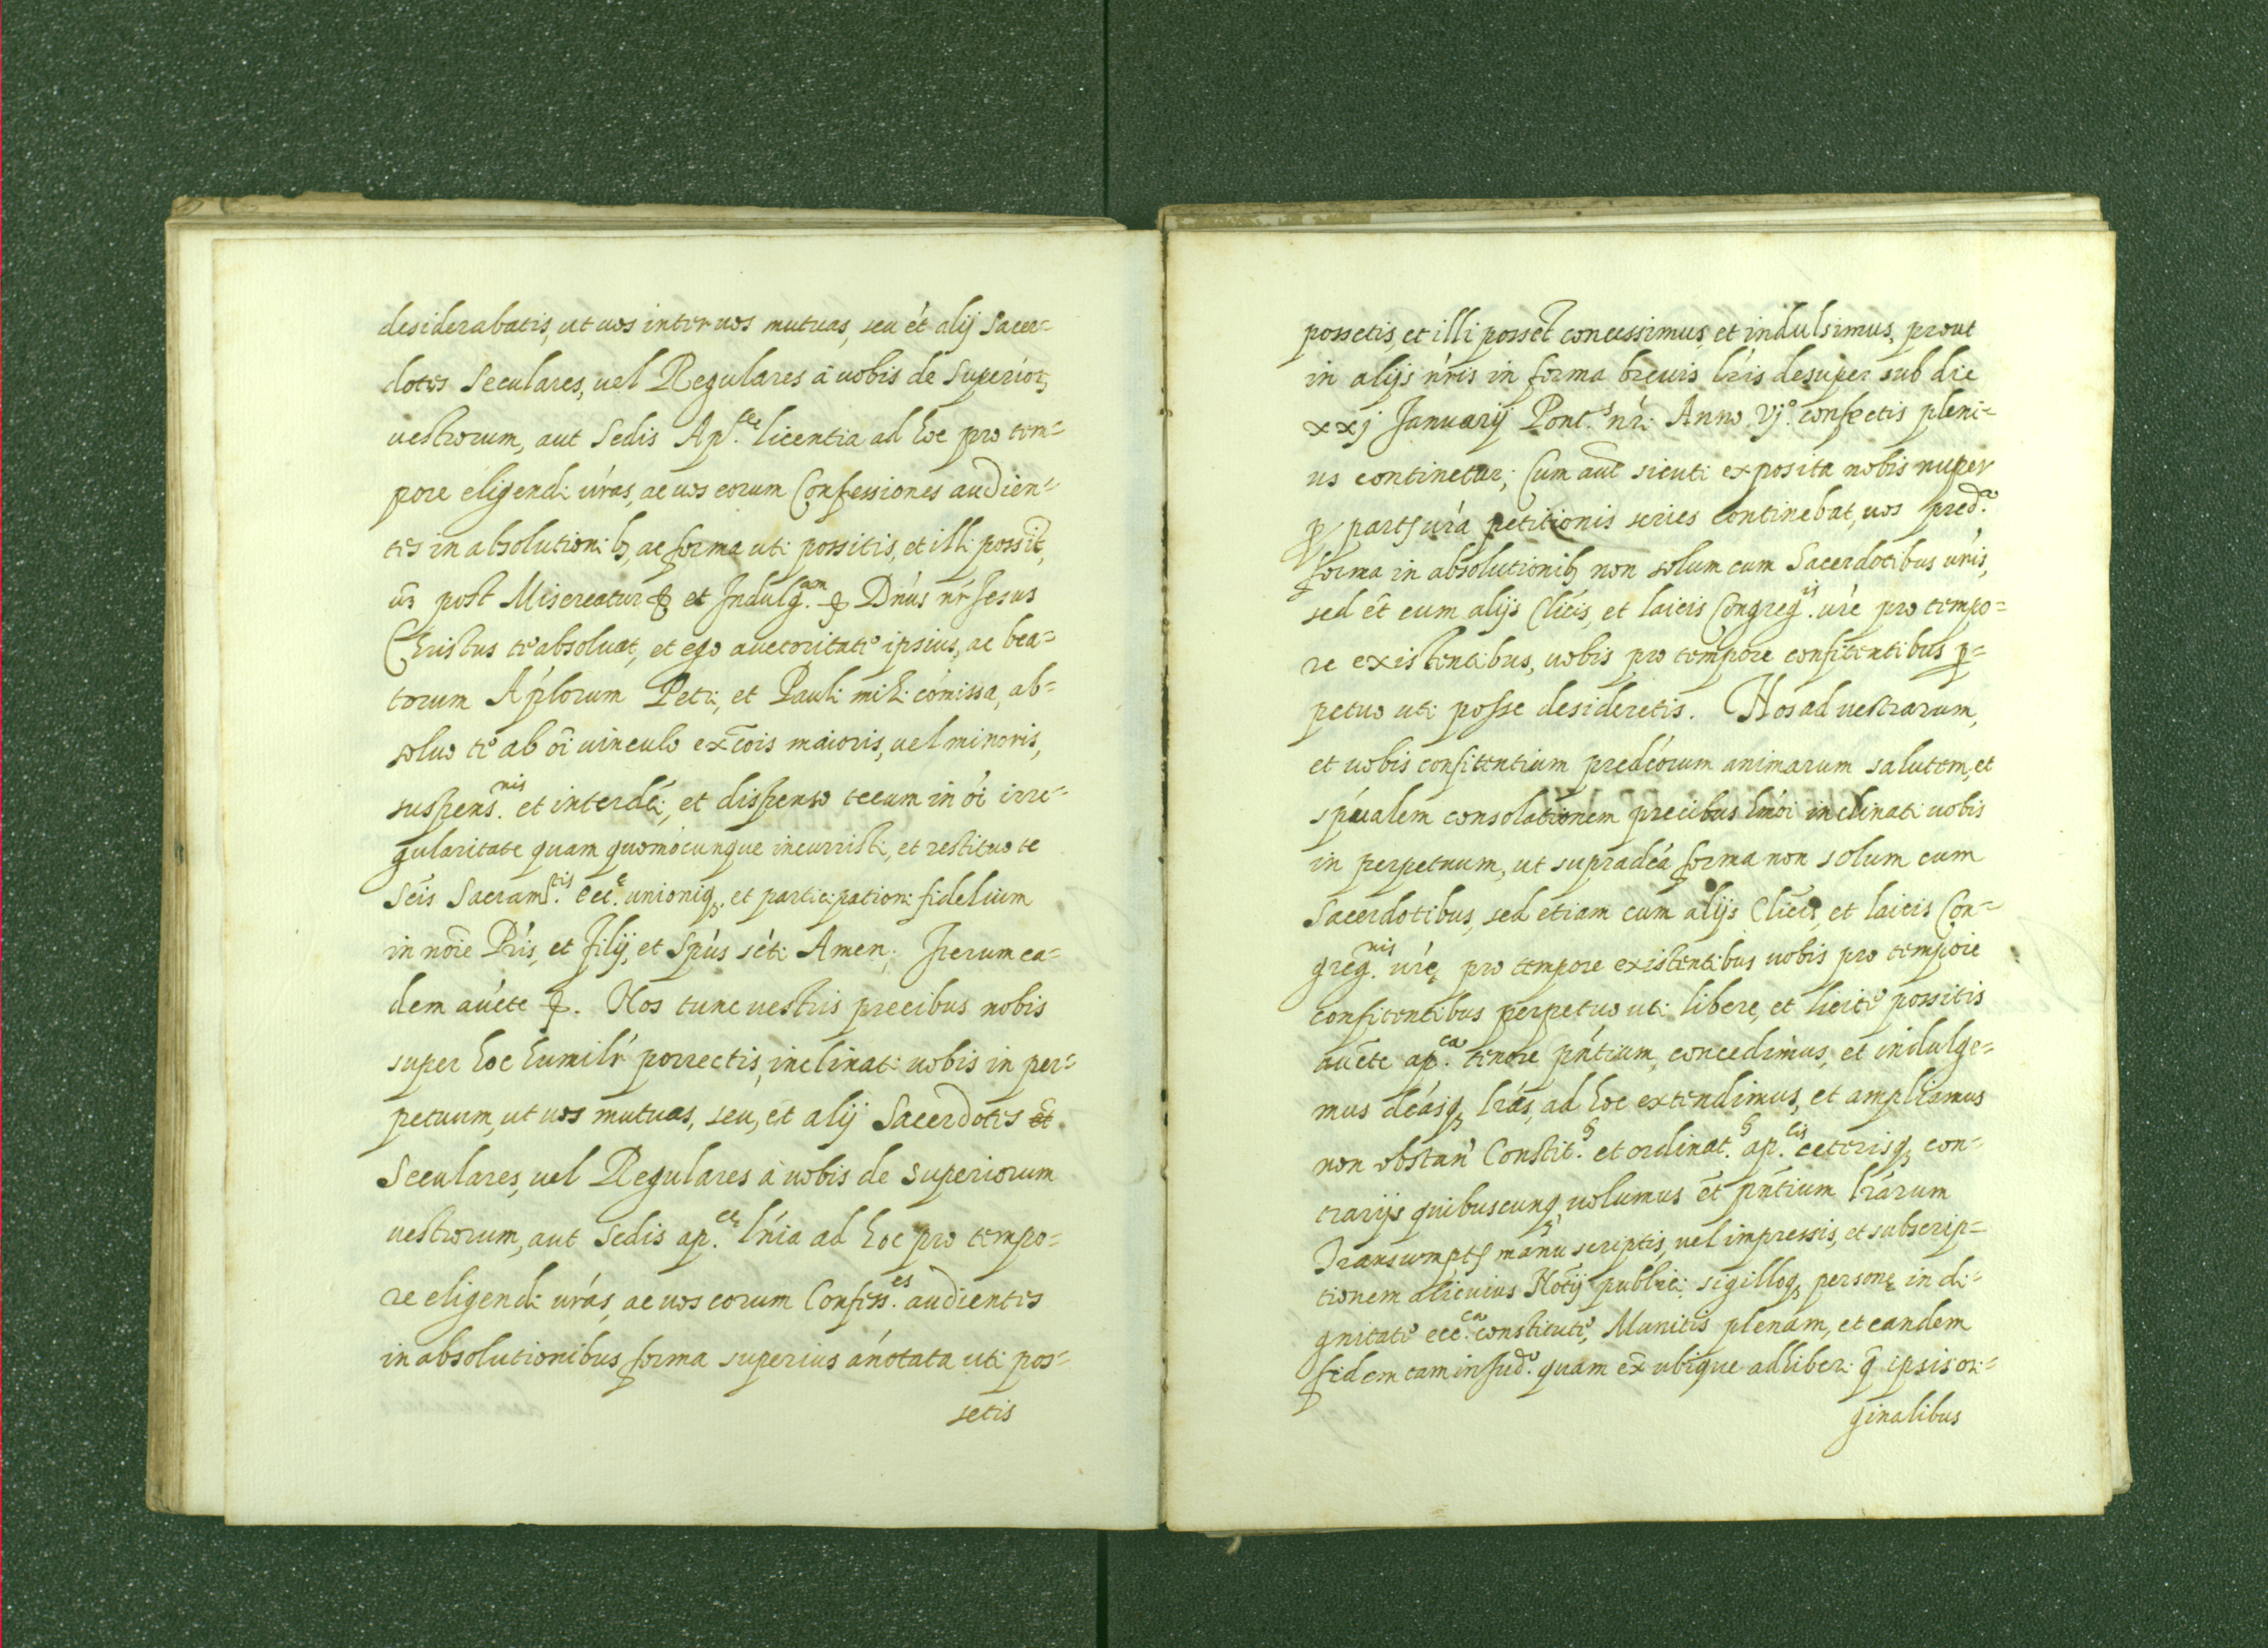 desiderabatis, ut uos inter uos mutuas, seu ét alij Sacer=
dotes Seculares, uel Regulares à uobis de Superior,
uestrorum, aut Sedis Ap.^cę licentia ad hoc pro tem=
pore eligendi úras, ac uos eorum Confessiones audien=
tes in absolutionibꝫ, ac forma uti possitis, et illi possīt,
uꝫ post Misereatur ꝭ et Indulg.^aon ꝭ Dn̄us nr̄ Jesus
Christus te absoluat, et ego auctoritate ipsius, ac bea=
torum Ap̄lorum Petri, et Pauli mihi cōmissa, ab=
soluo te ab oī uinculo ex̄cois maioris, uel minoris,
suspens.^nis et interdéi, et dispenso tecum in oī irre=
gularitate quam quomocunque incurristi, et restituo te
Sc̄is Sacram̄.^tis ecc.^ę unioniqꝫ, et participationi fidelium
in nōie Pr̄is, et Filij, et Sp̄ūs séti Amen; Iterum ea=
dem au̓cte ꝭ. Nos tunc uestris precibus nobis
super hoc humilr̓ porrectis, inclinati uobis in per=
petuum, ut uos mutuas, seu, ēt alij Sacerdotes et
Seculares, uel Regulares à uobis de superiorum
uestrorum, aut Sedis ap.^cę lńia ad hoc pro tempo=
re eligendi urás, ac uos eorum Confess.^es audientes
in absolutionibus forma superius ánotata uti pos=
setis
possetis, et illi possēt concessimus, et indulsimus, prout
in alijs nr̓is in forma breuis lr̓is desuper sub die
xxj Januarij Pont.^s nr̓i Anno Vj.° confectis pleni=
us continetur; Cum aut̄ sicuti exposita nobis nuper
ꝑ partꝭ ur̓a petitionis series continebat, uos pred.^a
forma in absolutionibꝫ non solum cum Sacerdotibus ur̓is,
sed ēt cum alijs Clic̓is, et laicis Congreg.^is ur̓e pro tempo=
re existentibus, uobis pro tempore confitentibus ꝑ=
petuo uti posse desideretis. Nos ad uestrarum,
et uobis confitentium predéorum animarum salutem, et
sṕualem consolationem precibus hmói inclinati uobis
in perpetuum, ut supradéa forma non solum cum
Sacerdotibus, sed etiam cum alijs Clic̄is, et laicis Con=
greg.^nis ur̓ę pro tempore existentibus uobis pro tempore
confitentibus perpetuo uti libere, et licite possitis
au̓cte ap.^ca tenore pńtium, concedimus, et indulge=
mus déasqꝫ lr̓as, ad hoc extendimus, et ampliamus
non obstan̓ Constit.^s et ordinat.^s ap.^cis ceterisqꝫ con=
trarijs quibuscunqꝫ, uolumus ēt pńtium lr̓arum
Transumptꝭ manu scriptis, uel impressis, et subscrip=
tionem alicuius Notīj publici, sigilloqꝫ personę in di=
gnitate ecc.^ca constitutę, Munitis plenam, et eandem
fidem tam in Jud.° quam ex̄ ubique adhiberi q̄ ipsis ori=
ginalibus